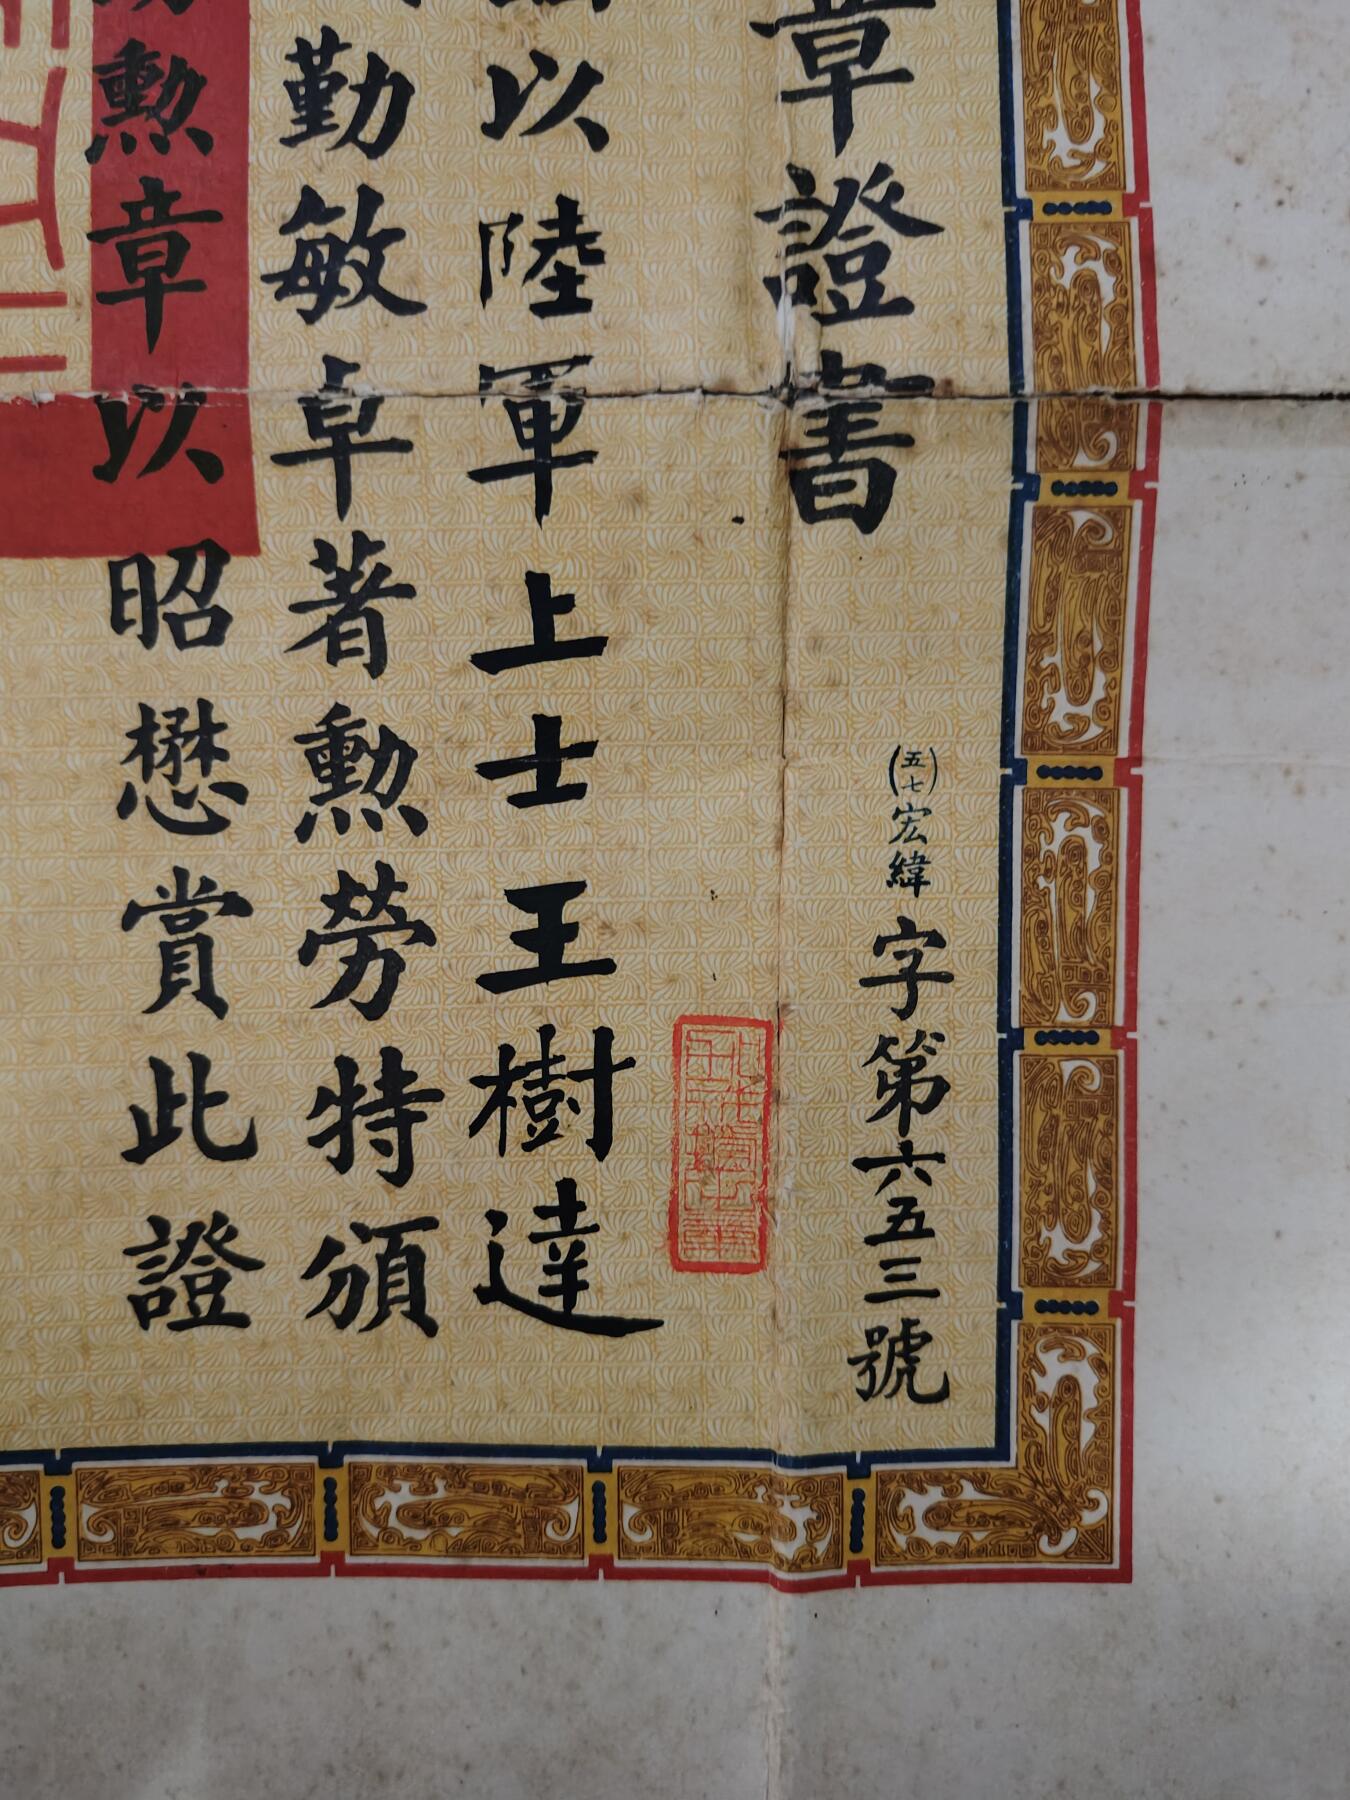 章證書
(五七)宏緯字第六五三號
以陸軍上士王樹達
勤敏卓著勲勞特頒
勲章以昭懋賞此證